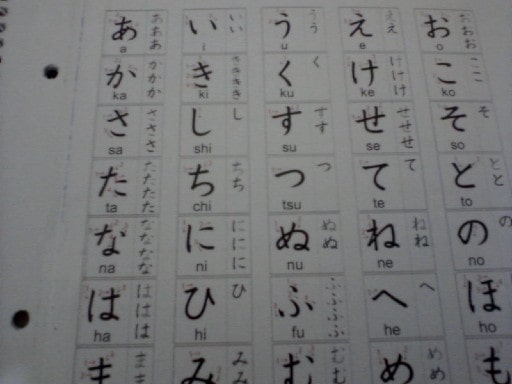 あ あ あ あ い い い う う う え え え お お お お
a i u e o
か か か か き き き き き く く け け け け こ こ こ
ka ki ku ke ko
さ さ さ さ し し す す す せ せ せ せ そ そ
sa shi su se so
た た た た た ち ち ち つ つ て て と と と
ta chi tsu te to
な な な な な に に に に ぬ ぬ ぬ ね ね ね の の
na ni nu ne no
は は は は ひ ひ ふ ふ ふ ふ ふ へ へ ほ
ha hi fu he ho
ま ま ま み み み む む む め め め も